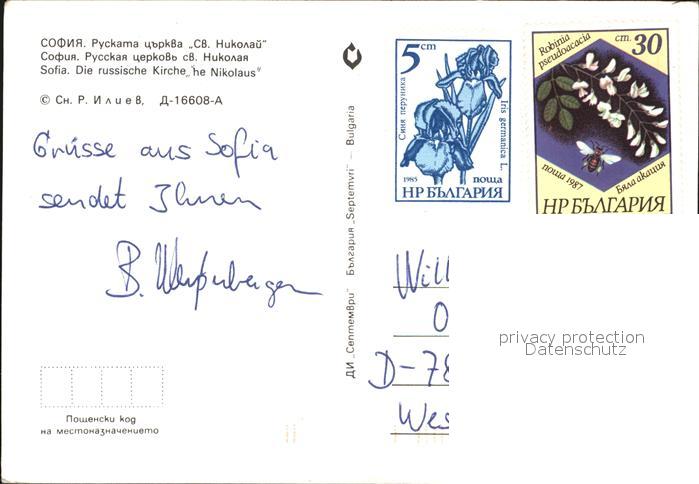 СОФИЯ. Руската църква „Св. Николай"
София. Русская церковь св. Николая
Sofia. Die russische Kirche „he Nikolaus"
© Сн. Р. Илиев, Д-16608-А
Grüsse aus Sofia
sendet Ihnen
B.
Пощенски код
на местоназначението
ДИ „Септември" България „Septemvri" — Bulgaria
5 ст
Синя перуника
Iris germanica L.
1985
поща
НР БЪЛГАРИЯ
ст. 30
Robinia
pseudoacacia
поща 1987
Бяла акация
НР БЪЛГАРИЯ
Will
O
D-78
Wes
privacy protection
Datenschutz